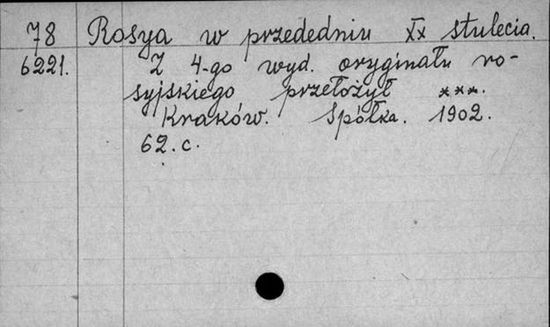 78 Rosya w przededniu XX stulecia.
6221. Z 4-go wyd. oryginału ro-
syjskiego przełożył ***.
Kraków. Spółka. 1902.
62. c.